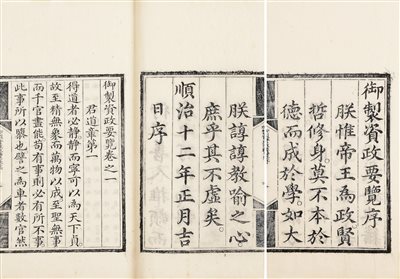 御製資政要覽序
朕惟帝王為政賢
哲修身莫不本於
德而成於學如大
朕諄諄教喻之心
庶乎其不虛矣
順治十二年正月吉
日序
御製資政要覽卷之一
君道章第一
得道者必靜靜而寧可以為天下貞
故至精無象而萬物以成至聖無事
而千官盡能苟有事則必有所不事
此事所以隳也譬之為車者數官然